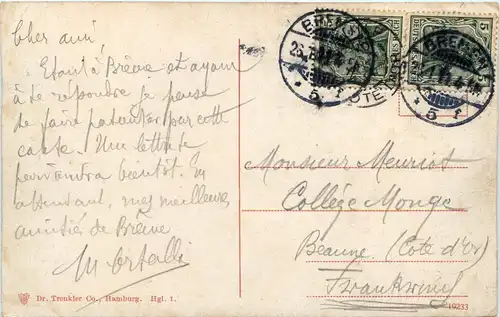 Cher ami,
Etant à Brême et ayant
à te répondre je pense
de faire patienter par cette
carte. Une lettre te
parviendra bientôt. En
attendant, mes meilleures
amitiés de Brême
Monsieur Meuriot
Collège Monge
Beaune (Côte d'Or)
Frankreich
BREMEN
BREMEN
5
* 5 f
* 5 f
Dr. Trenkler Co., Hamburg. Hgl. 1.
10233